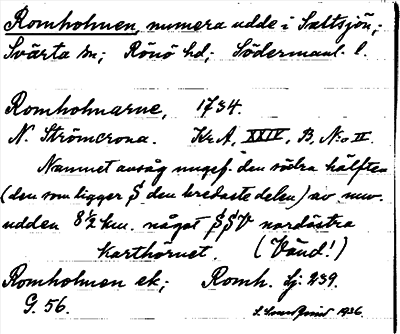 Romholmen, numera udde i Saltsjön;
Svärta sn; Rönö hd; Södermanl. l.
Romholmarne, 1734.
N. Strömcrona. Kr A, XXIV, B, N:o II.
Namnet avsåg ungef. den södra hälften
(den som ligger S den bredaste delen) av nuv.
udden 8½ km. något SSV nordöstra
karthörnet. (Vänd!)
Romholmen ek; Romh. lj. 239.
G. 56. 1936.